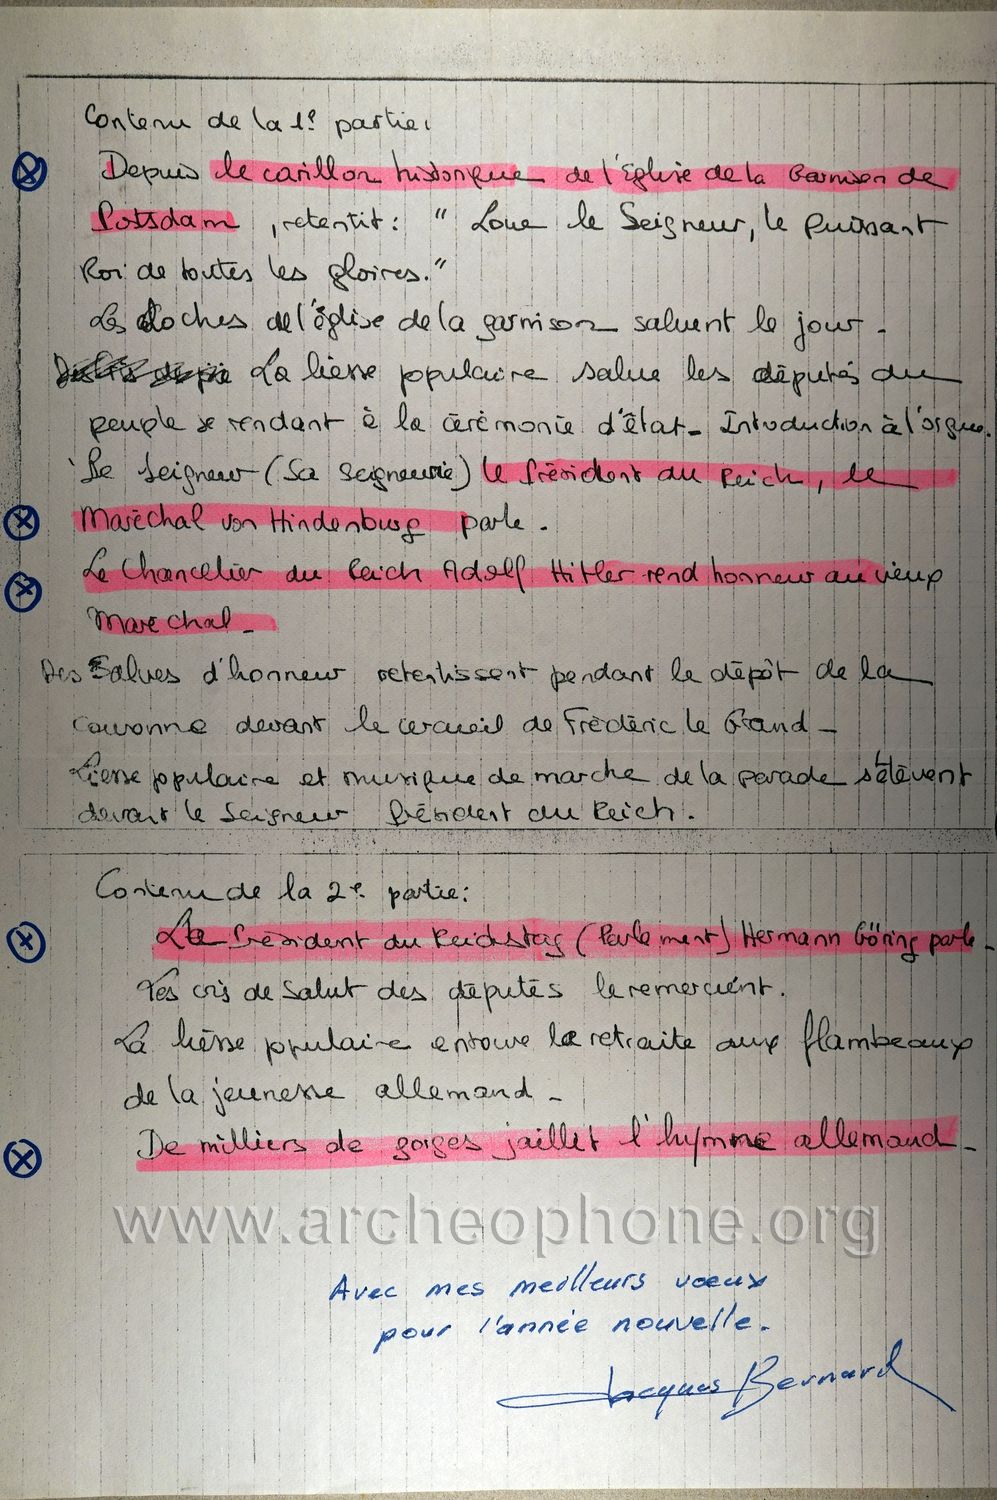 Contenu de la 1e partie:
Depuis le carillon historique de l'Eglise de la Garnison de
Potsdam, retentit: " Loue le Seigneur, le Puissant
Roi de toutes les gloires."
Les cloches de l'église de la garnison saluent le jour -
La liesse populaire salue les députés du
peuple se rendant à la cérémonie d'état - Introduction à l'orgue.
Le Seigneur (Sa Seigneurie) le Président du Reich, le
Maréchal von Hindenburg parle.
Le Chancelier du Reich Adolf Hitler rend honneur au vieux
Maréchal -
Des Salves d'honneur retentissent pendant le dépôt de la
couronne devant le cercueil de Frédéric le Grand -
Liesse populaire et musique de marche de la parade s'élèvent
devant le Seigneur Président du Reich.
Contenu de la 2e partie:
Le Président du Reichstag (Parlement) Hermann Göring parle -
Les cris de Salut des députés le remercient.
La liesse populaire entoure la retraite aux flambeaux
de la jeunesse allemand -
De milliers de gorges jaillet l'hymne allemand -
www.archeophone.org
Avec mes meilleurs vœux
pour l'année nouvelle.
Jacques Bernard